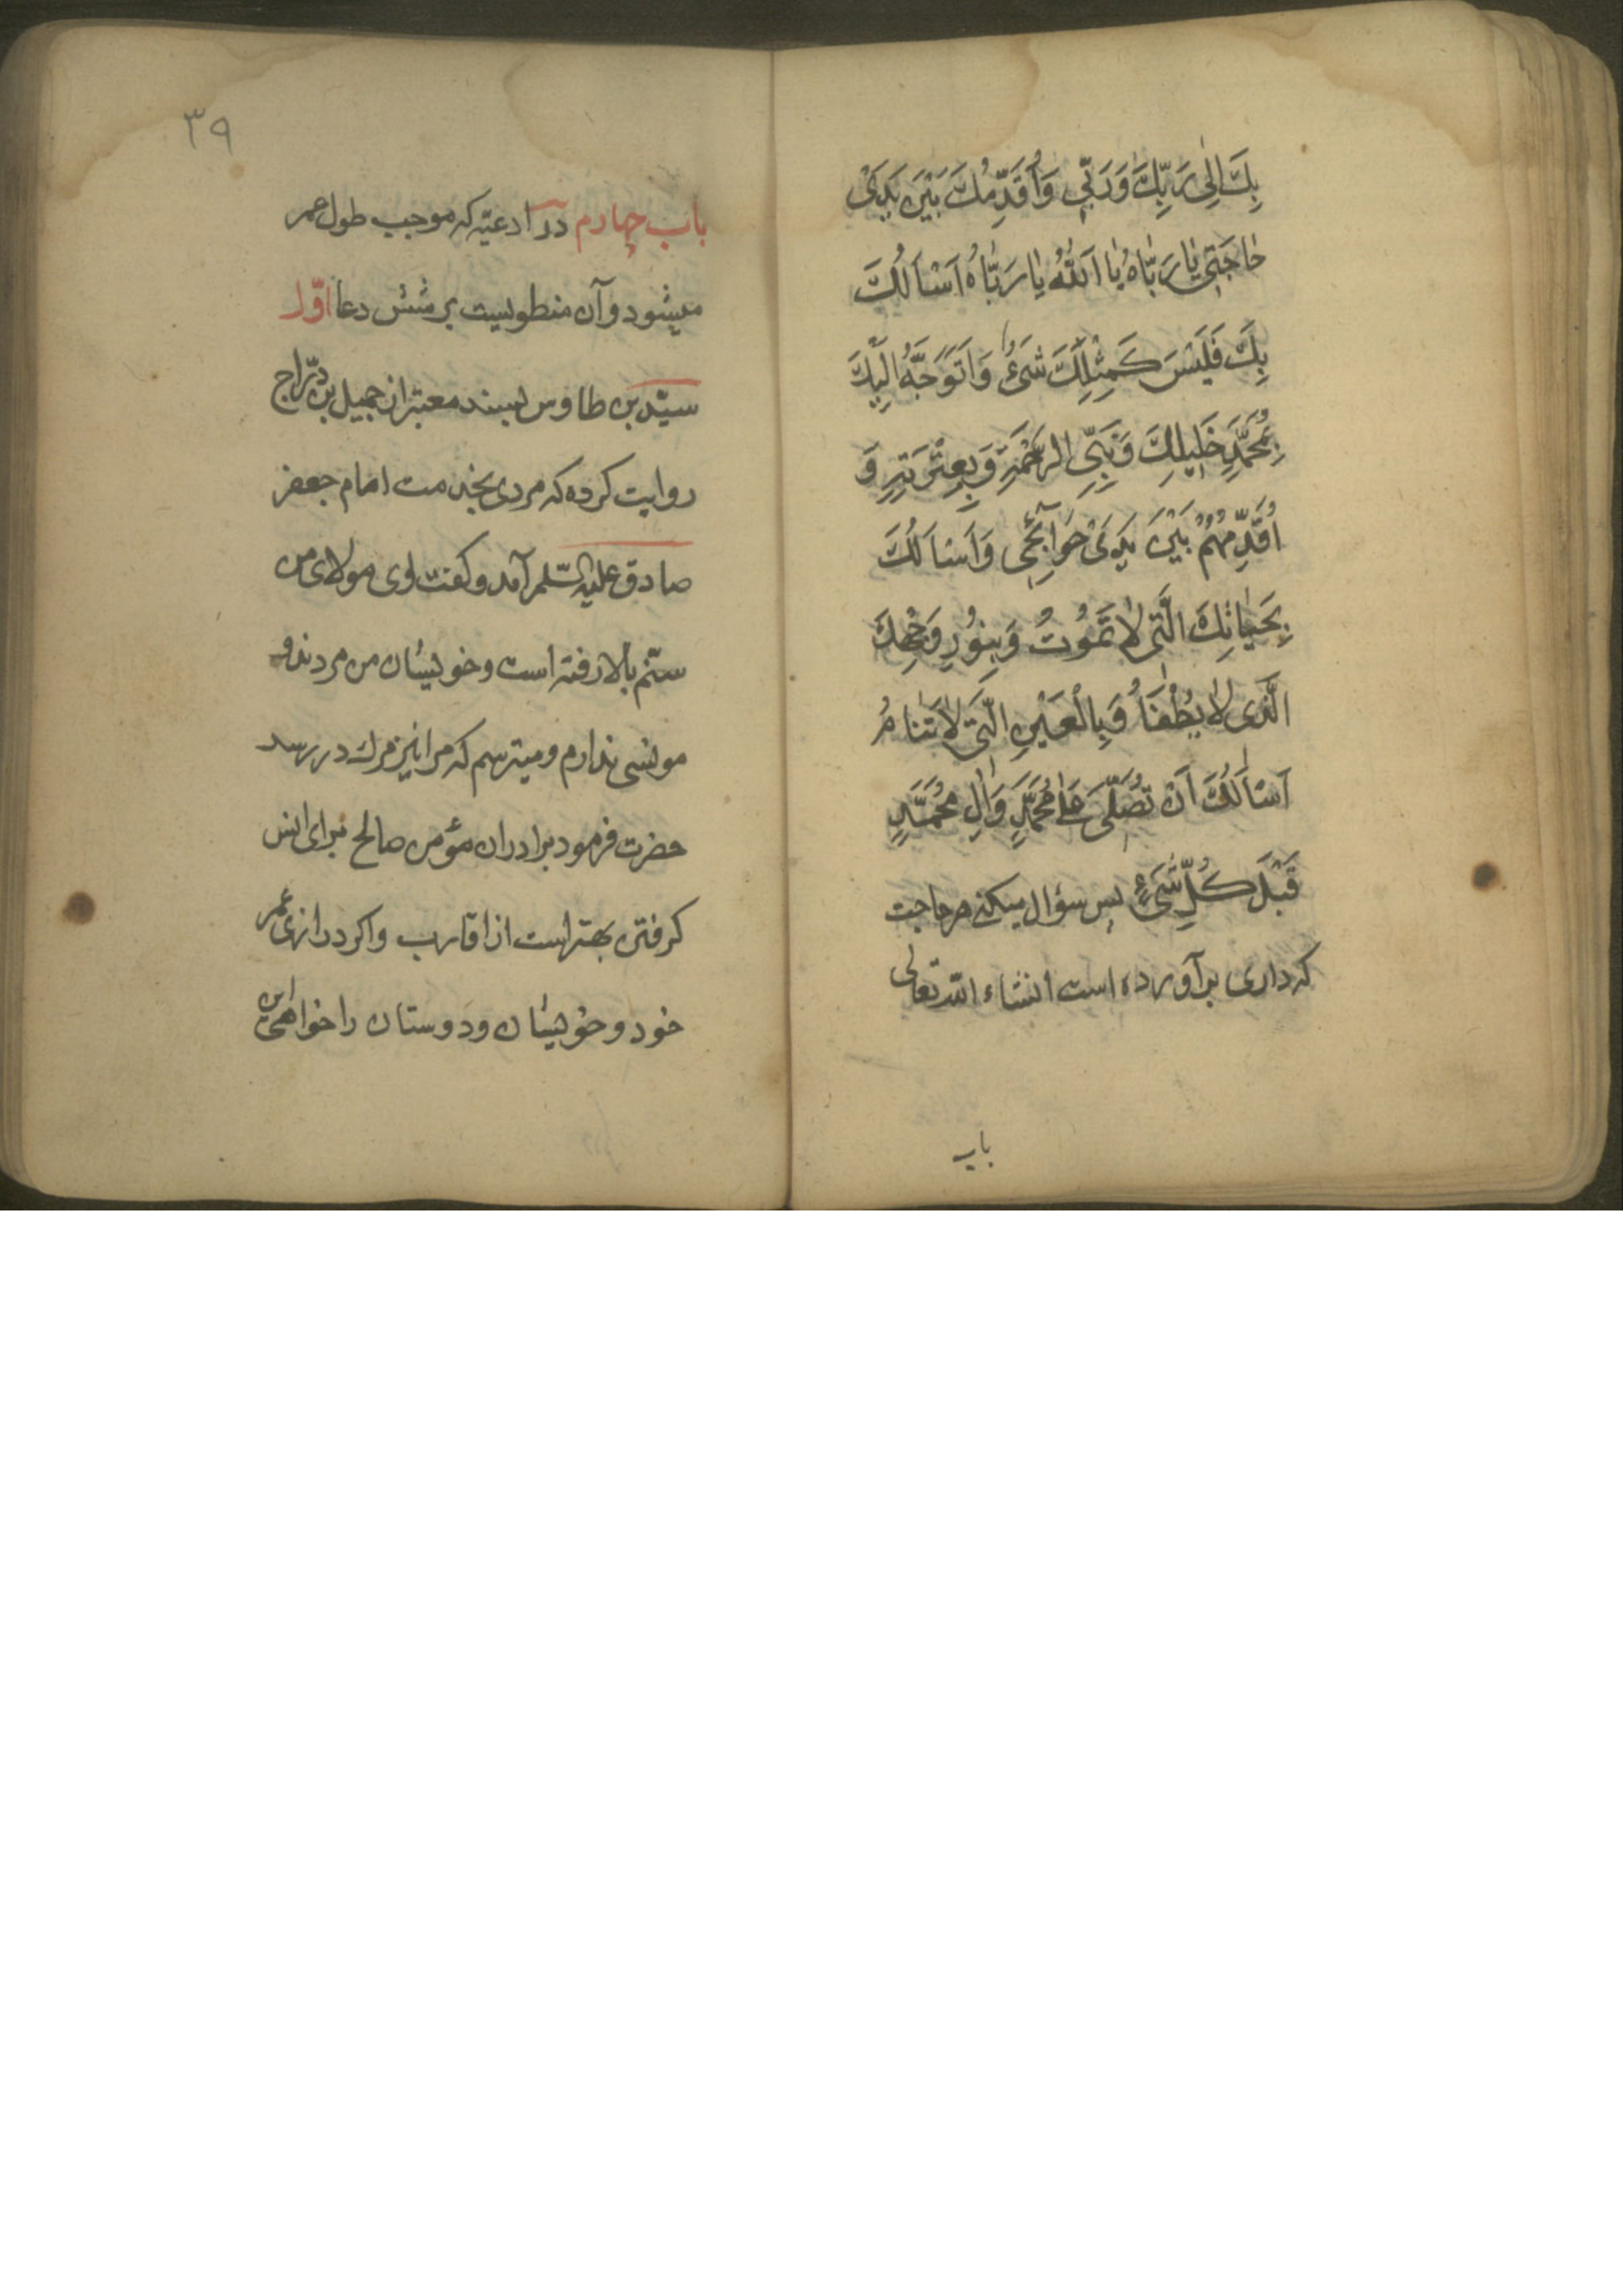 بِكَ اِلٰى رَبِّكَ وَرَبّي وَاُقَدِّمُكَ بَيْنَ يَدَىْ
حٰاجَتِى يٰا رَبّٰاهُ يٰا اَللّٰهُ يٰا رَبّٰاهُ اَسْاَلُكَ
بِكَ فَلَيْسَ كَمِثْلِكَ شَىْءٌ وَاَتَوَجَّهُ اِلَيْكَ
بِمُحَمَّدٍ خَليلِكَ وَنَبِىِّ الرَّحْمَةِ وَبِعِتْرَتِهِ وَ
اُقَدِّمُهُمْ بَيْنَ يَدَىْ حَوٰآئِجى وَاَسْاَلُكَ
بِحَيٰاتِكَ الَّتى لٰا تَمُوتُ وَبِنُورِ وَجْهِكَ
الَّذى لٰا يُطْفَاُ وَبِالْعَيْنِ الَّتى لٰا تَنٰامُ
اَسْاَلُكَ اَنْ تُصَلِّىَ عَلٰى مُحَمَّدٍ وَاٰلِ مُحَمَّدٍ
قَبْلَ كُلِّ شَىْءٍ پس سؤال ميكنى هر حاجت
كه دارى برآورده است انشاء الله تعالى
باب
٣٩
باب چهارم در ادعيّه كه موجب طول عمر
ميشود و آن منطويست بر شش دعا اوّل
سيّد بن طاوس بسند معتبر از جميل بن درّاج
روايت كرده كه مردى بخدمت امام جعفر
صادق عليه السّلم آمد و كفت اى مولاى من
سنّم بالا رفته است و خويشان من مردند و
مونسى ندارم و ميترسم كه مرا نيز مرك در رسد
حضرت فرمود برادران مؤمن صالح براى انس
كرفتن بهتر است از اقارب و اكر درازى عمر
خود و خويشان و دوستان را خواهى اين